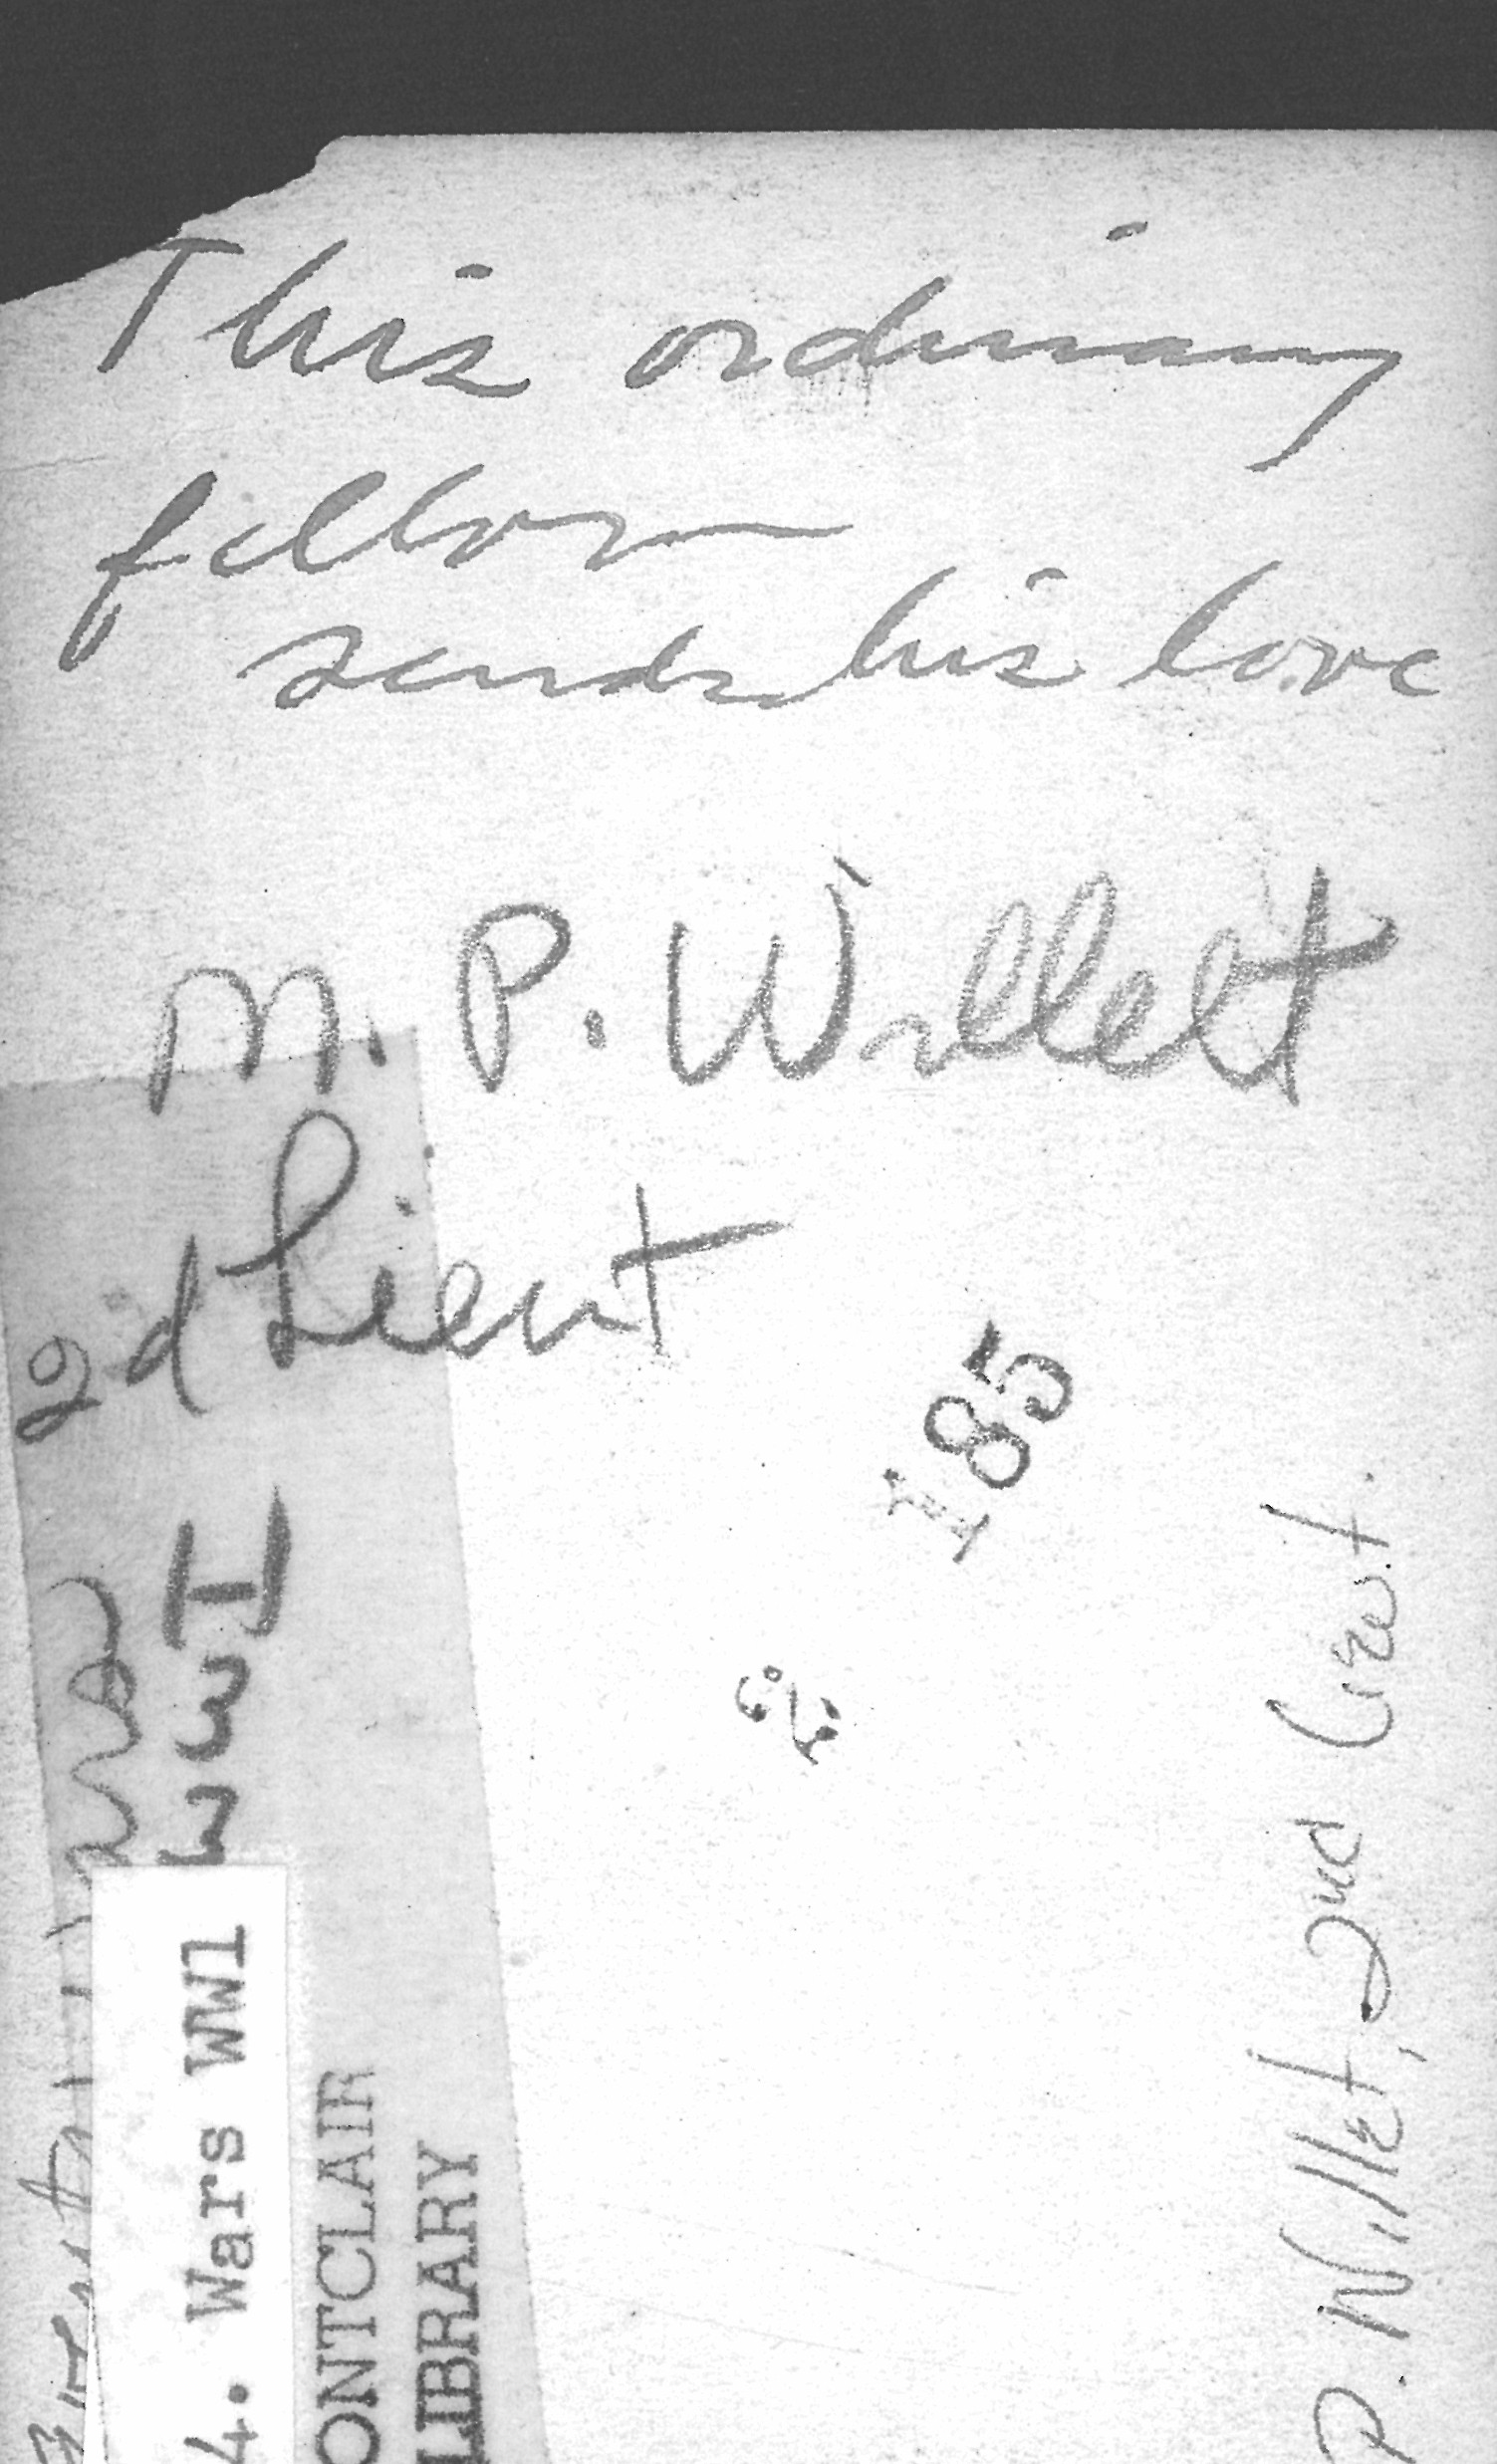 This ordinary
fellow
sends his love
M. P. Willett
2d Lieut
185
WWI
4. Wars WW1
ONTCLAIR
LIBRARY
P. Willet, 2nd Lieut.